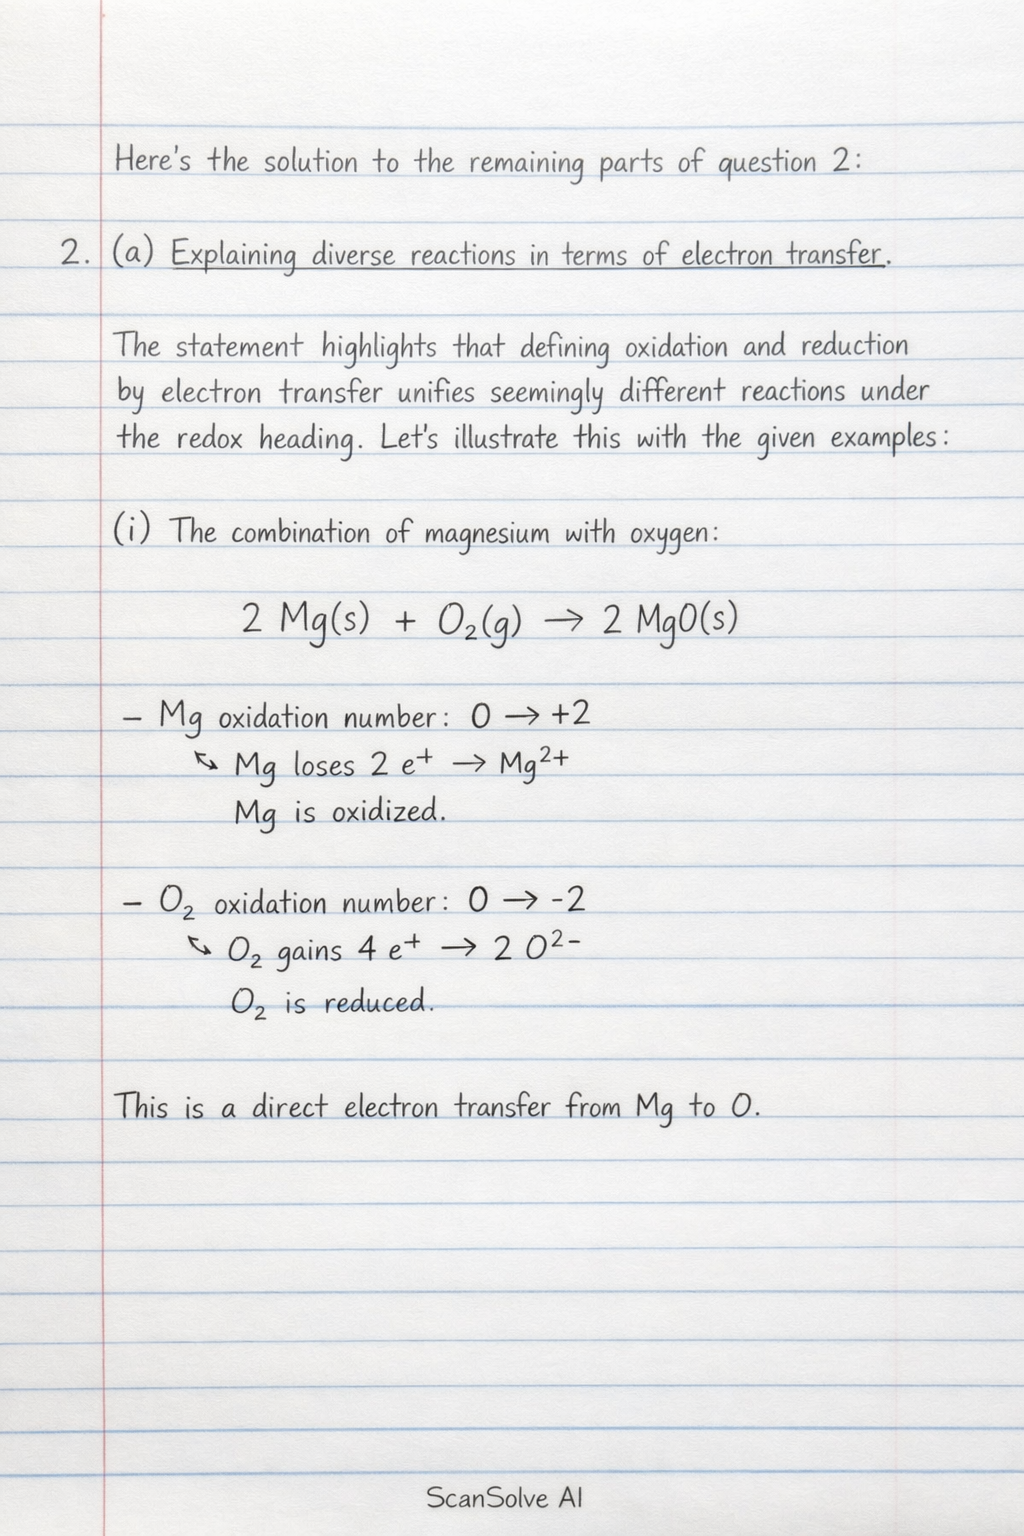 Here's the solution to the remaining parts of question 2:
2. (a) Explaining diverse reactions in terms of electron transfer.
The statement highlights that defining oxidation and reduction
by electron transfer unifies seemingly different reactions under
the redox heading. Let's illustrate this with the given examples:
(i) The combination of magnesium with oxygen:
2 Mg(s) + O₂(g) → 2 MgO(s)
– Mg oxidation number: 0 → +2
Mg loses 2 e⁺ → Mg²⁺
Mg is oxidized.
– O₂ oxidation number: 0 → -2
O₂ gains 4 e⁺ → 2 O²⁻
O₂ is reduced.
This is a direct electron transfer from Mg to O.
ScanSolve AI